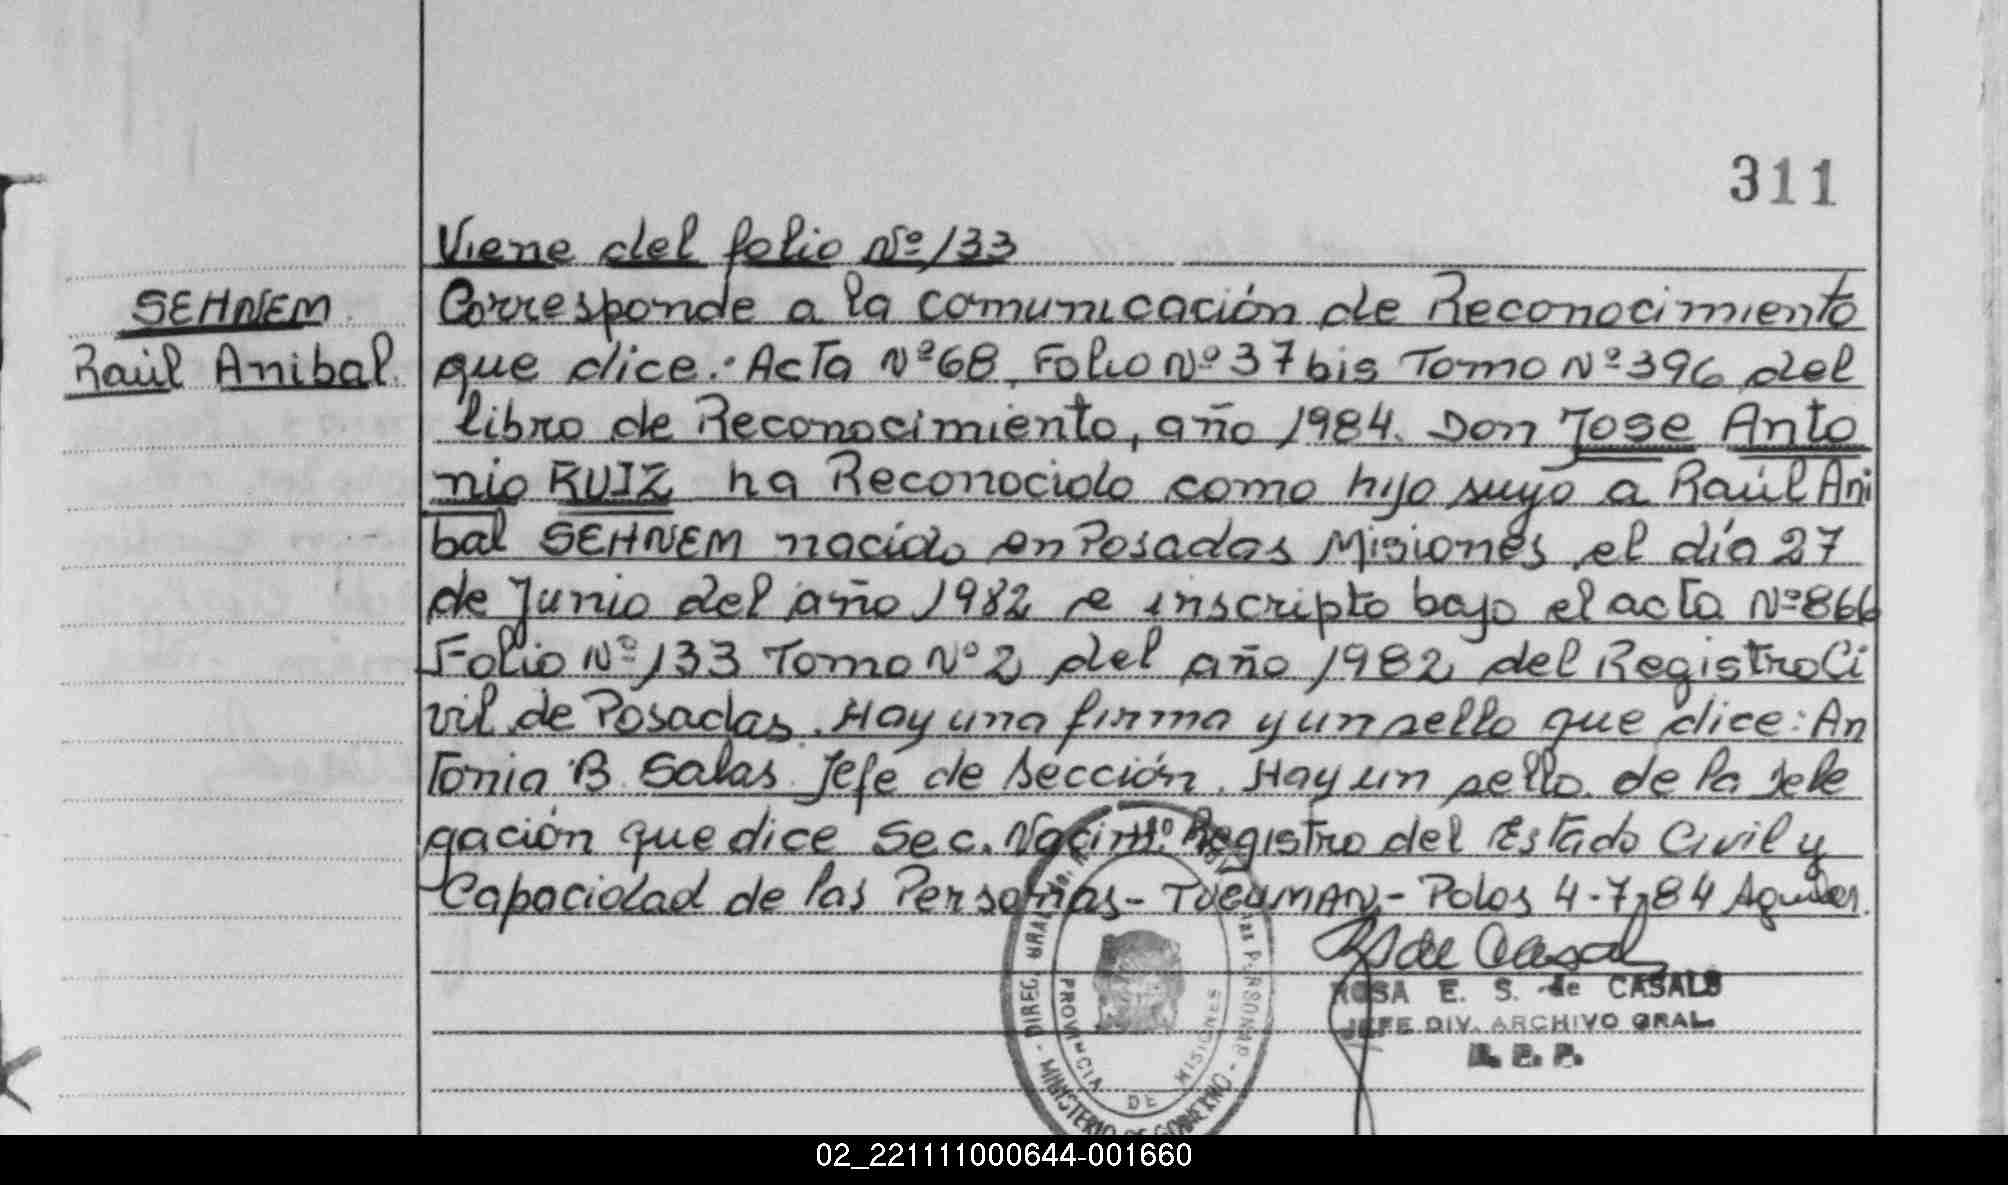 311
Viene del folio Nº 133
SEHNEM
Raúl Anibal.
Corresponde a la comunicación de Reconocimiento
que dice: Acta Nº 68 Folio Nº 37 bis Tomo Nº 396 del
libro de Reconocimiento, año 1984. Don Jose Anto
nio RUIZ ha Reconocido como hijo suyo a Raúl Ani
bal SEHNEM nacido en Posadas Misiones el día 27
de Junio del año 1982 e inscripto bajo el acta Nº 866
Folio Nº 133 Tomo Nº 2 del año 1982 del Registro Ci
vil de Posadas. Hay una firma y un sello que dice: An
tonia B. Salas Jefe de Sección. Hay un sello de la Dele
gación que dice Sec. Nacimto. Registro del Estado Civil y
Capacidad de las Personas - TUCUMAN - Pdas 4-7-84
R S de Casals
ROSA E. S. de CASALS
JEFE DIV. ARCHIVO GRAL.
R. P. P.
DIREC. GRAL. LAS PERSONAS - MINISTERIO DE GOBIERNO -
PROVINCIA DE MISIONES
02_221111000644-001660